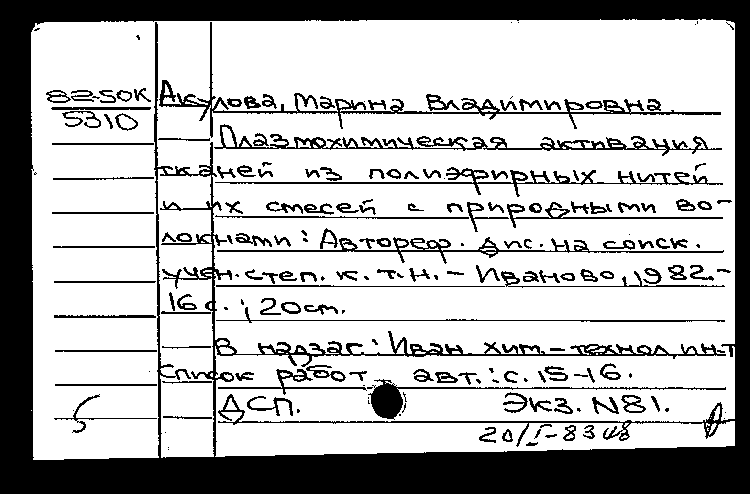 82-50К Акулова, Марина Владимировна.
5310
Плазмохимическая активация
тканей из полиэфирных нитей
и их смесей с природными во-
локнами: Автореф. дис. на соиск.
учен. степ. к. т. н. - Иваново, 1982. -
16 с. ; 20 см.
В надзаг.: Иван. хим. - технол. ин-т
Список работ авт.: с. 15-16.
5 ДСП. Экз. N81.